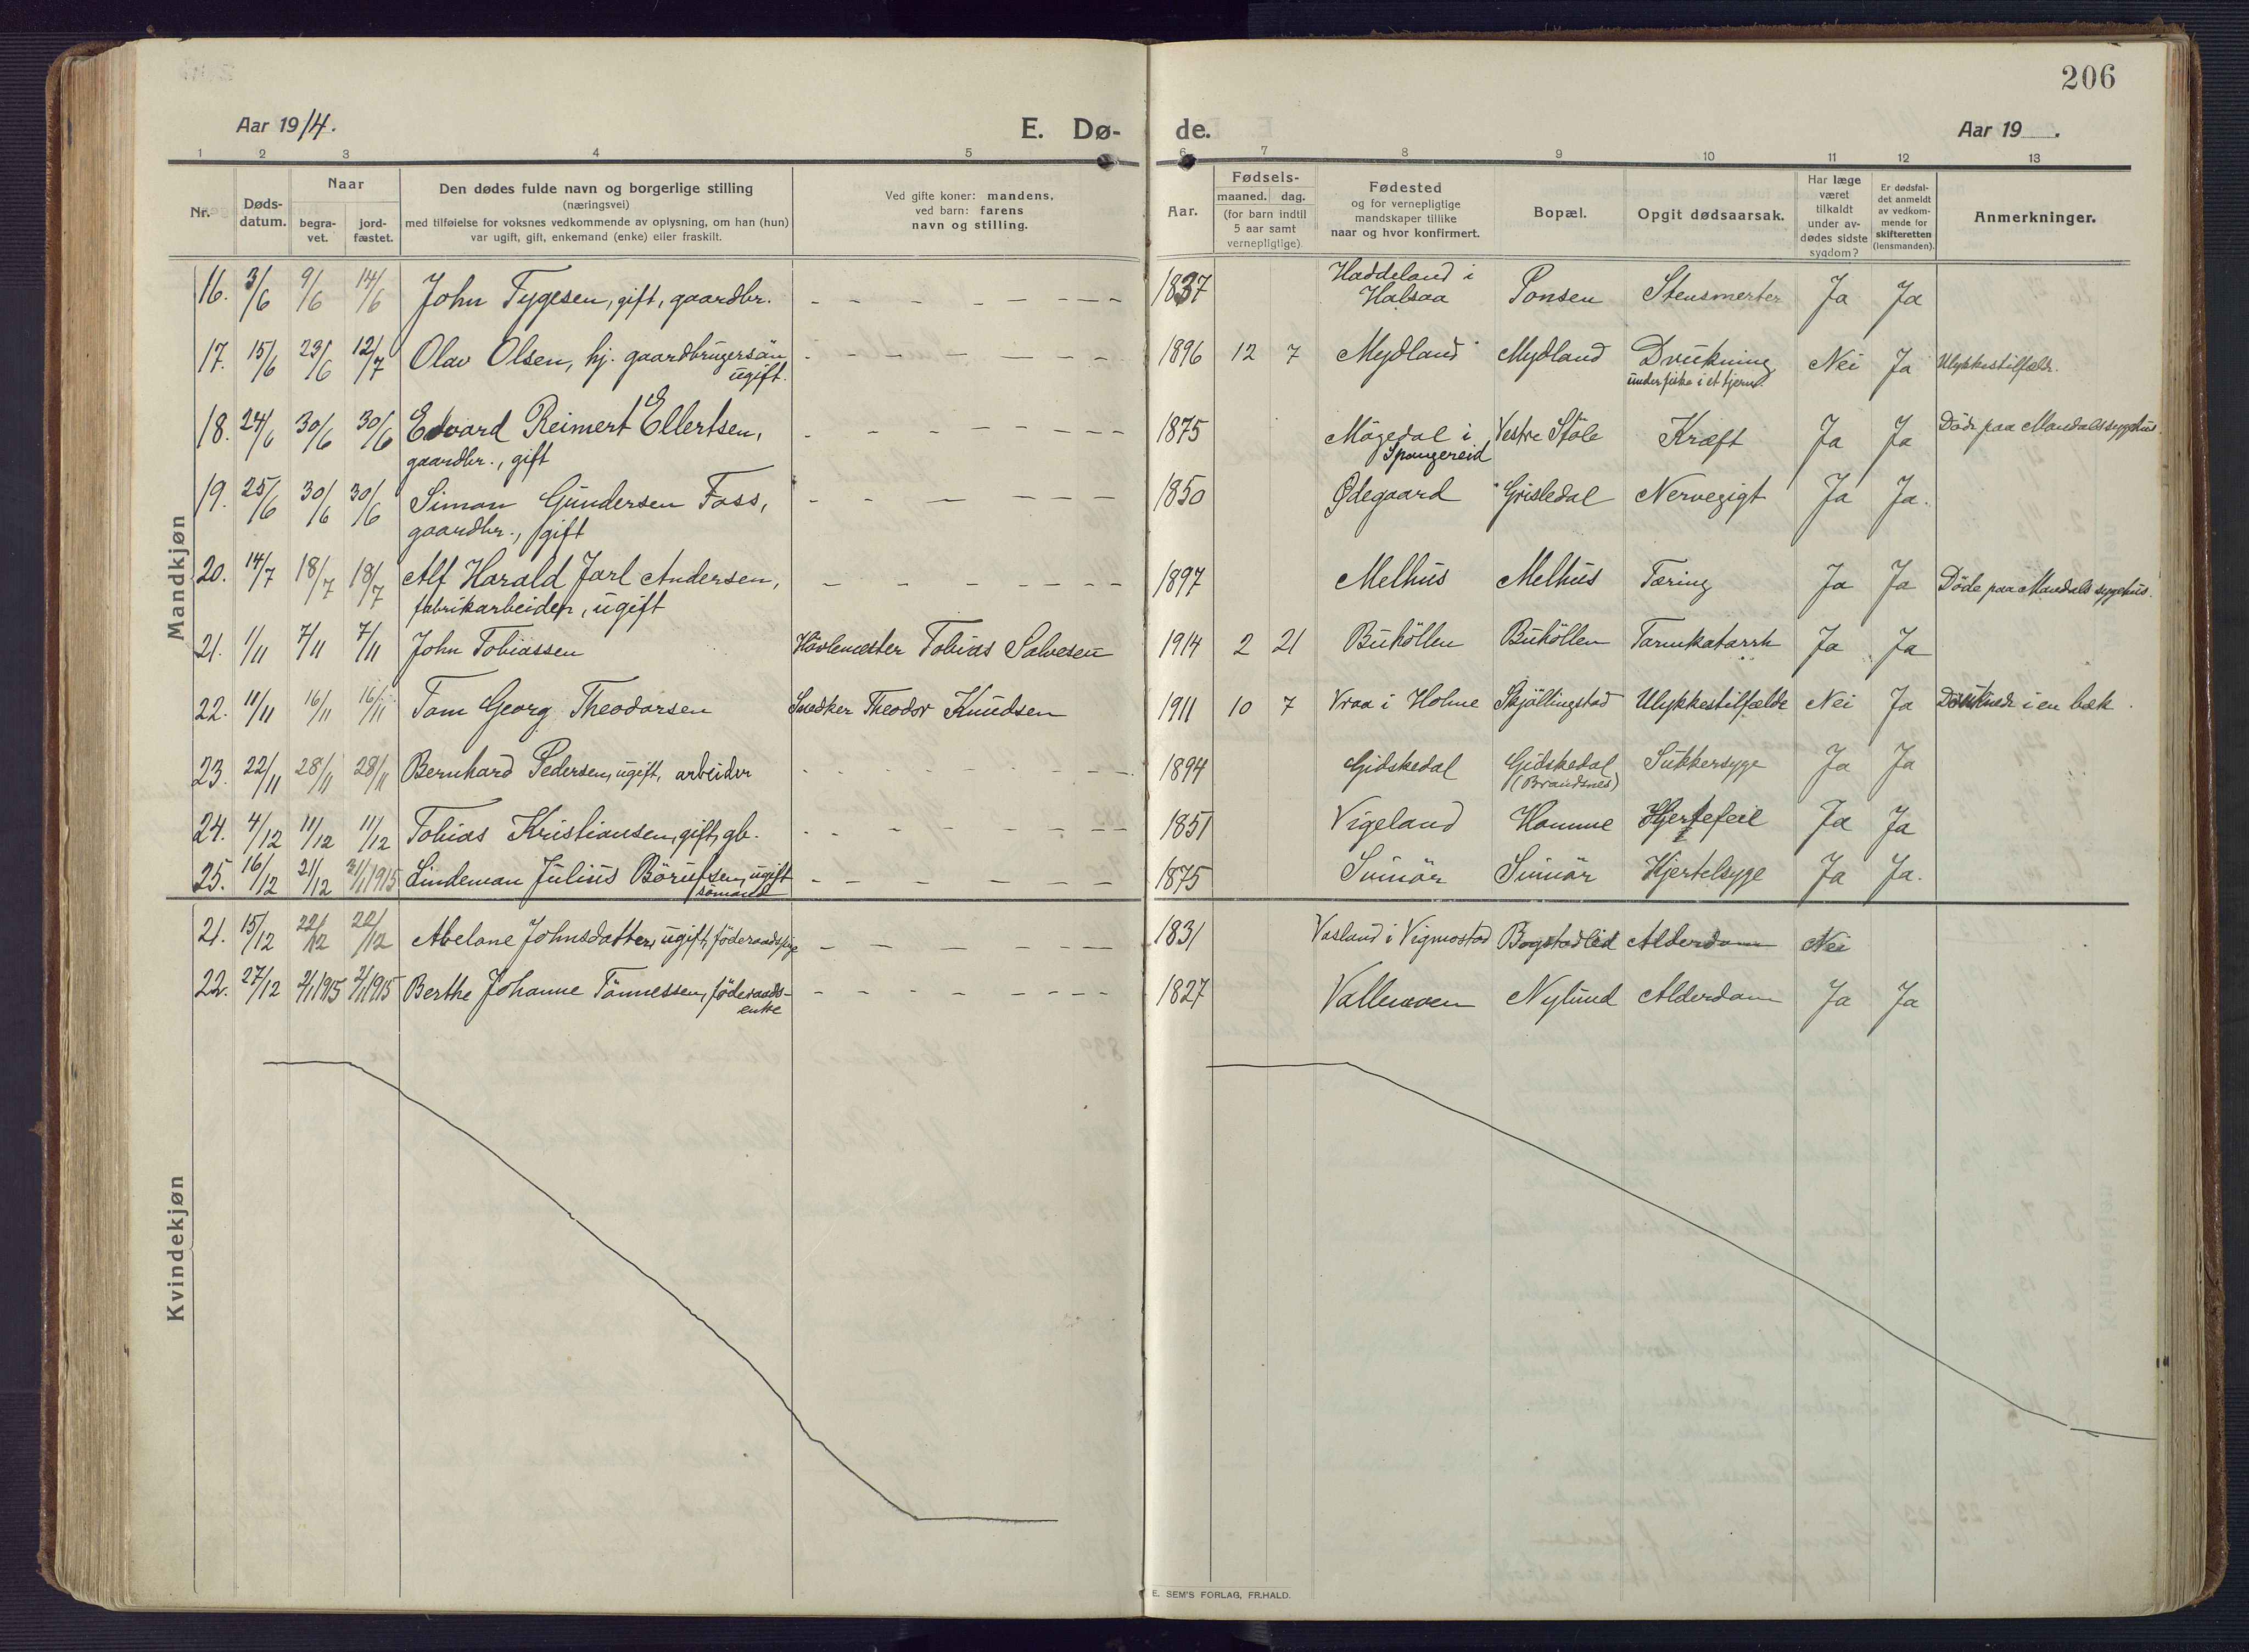 206
Aar 1914.
E. Dø-
de.
Aar 19 .
1 2 3 4 5 6 7 8 9 10 11 12 13
Nr.
Døds-
datum.
Naar
begra-
vet.
jord-
fæstet.
Den dødes fulde navn og borgerlige stilling
(næringsvei)
med tilføielse for voksnes vedkommende av oplysning, om han (hun)
var ugift, gift, enkemand (enke) eller fraskilt.
Ved gifte koner: mandens,
ved barn: farens
navn og stilling.
Aar.
Fødsels-
maaned. dag.
(for barn indtil
5 aar samt
vernepligtige)
Fødested
og for vernepligtige
mandskaper tillike
naar og hvor konfirmert.
Bopæl.
Opgit dødsaarsak.
Har læge
været
tilkaldt
under av-
dødes sidste
sygdom?
Er dødsfal-
det anmeldt
av vedkom-
mende for
skifteretten
(lensmanden).
Anmerkninger.
Mandkjøn
16. 3/6 9/6 14/6 John Tygesen, gift, gaardbr. - - - - - - - - 1837 Haddeland i
Halsaa Ponsen Stensmerter Ja Ja
17. 15/6 23/6 12/7 Olav Olsen, hj. gaardbrugersøn, - - - - - - - 1896 12 7 Mydland Mydland Drukning Nei Ja Ulykkestilfælde.
ugift. under fiske i et tjern.
18. 24/6 30/6 30/6 Edvard Reimert Ellertsen, - - - - - - - - 1875 Mågedal i Vestre Støle Kræft Ja Ja Døde paa Mandals sygehus.
gaardbr., gift Spangereid
19. 25/6 30/6 30/6 Simon Gundersen Foss, - - - - - - 1850 Ødegaard Grisledal Nervegigt Ja Ja.
gaardbr., gift
20. 14/7 18/7 18/7 Alf Harald Jarl Andersen, - - - - - - - 1897 Melhus Melhus Tæring Ja Ja Døde paa Mandals sygehus.
fabrikarbeider, ugift
21. 1/11 7/11 7/11 John Tobiassen Høvlemester Tobias Salvesen 1914 2 21 Buhöllen Buhöllen Tarmkatarrh Ja Ja
22. 11/11 16/11 16/11 Tom Georg Theodorsen Snedker Theodor Knudsen 1911 10 7 Vraa i Holme Skjöllingstad Ulykkestilfælde Nei Ja Druknede i en bæk.
23. 22/11 28/11 28/11 Bernhard Pedersen, ugift, arbeider - - - - - - - - 1894 Gidskedal Gidskedal Sukkersyge Ja Ja
(Brandsnes)
24. 4/12 11/12 11/12 Tobias Kristiansen, gift, gb. - - - - - - - 1851 Vigeland Homme Hjertefeil Ja Ja
25. 16/12 21/12 31/1 1915 Lindeman Julius Börufsen, ugift - - - - - - 1875 Svinör Svinör Hjertelsyge Ja Ja.
sömand
Kvindekjøn
21. 15/12 22/12 22/12 Abelone Johnsdatter, ugift, föderaadspige - - - - - - 1831 Vasland i Vigmostad Bogstadlid Alderdom Nei
22. 27/12 2/1 1915 2/1 1915 Berthe Johanne Tönnessen, föderaads- - - - - - - - - 1827 Valleraven Nylund Alderdom Ja Ja
enke
E. SEM'S FORLAG, FR.HALD.